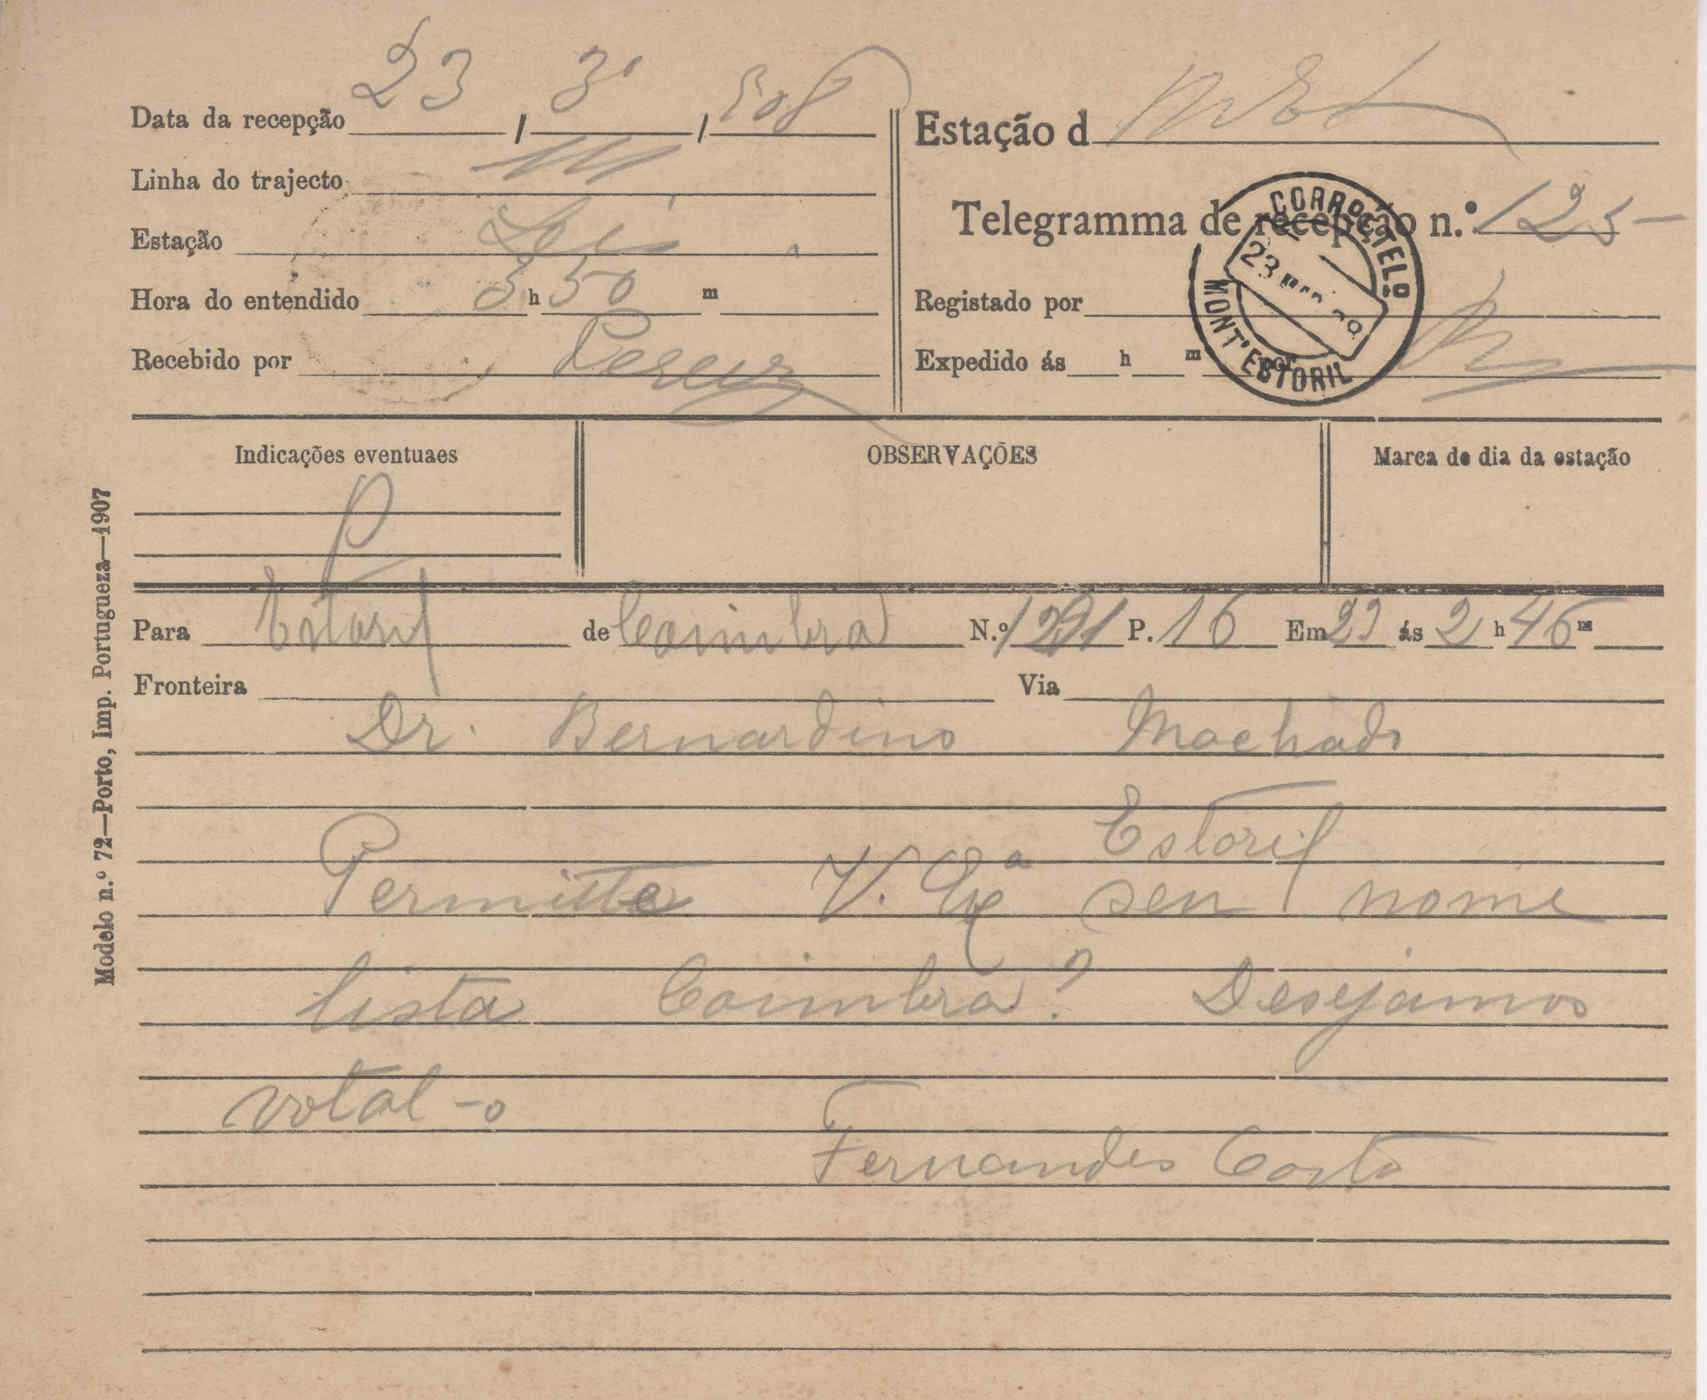 Data da recepção 23 / 3º / 908
Estação d
Linha do trajecto
Telegramma de recepção n.º 125
Estação
Hora do entendido 3 h 50 m
Registado por
Recebido por Pereira
Expedido ás h m por
CORRº E TELº
23 MAR
MONT'ESTORIL
Indicações eventuaes
OBSERVAÇÕES
Marca do dia da estação
P
Para Estoril de Coimbra N.º 1291 P. 16 Em 23 ás 2 h 46 m
Fronteira Via
Dr. Bernardino Machado
Estoril
Permitte V. Exª seu nome
lista Coimbra? Desejamos
votal-o
Fernandes Costa
Modelo n.º 72—Porto, Imp. Portugueza—1907